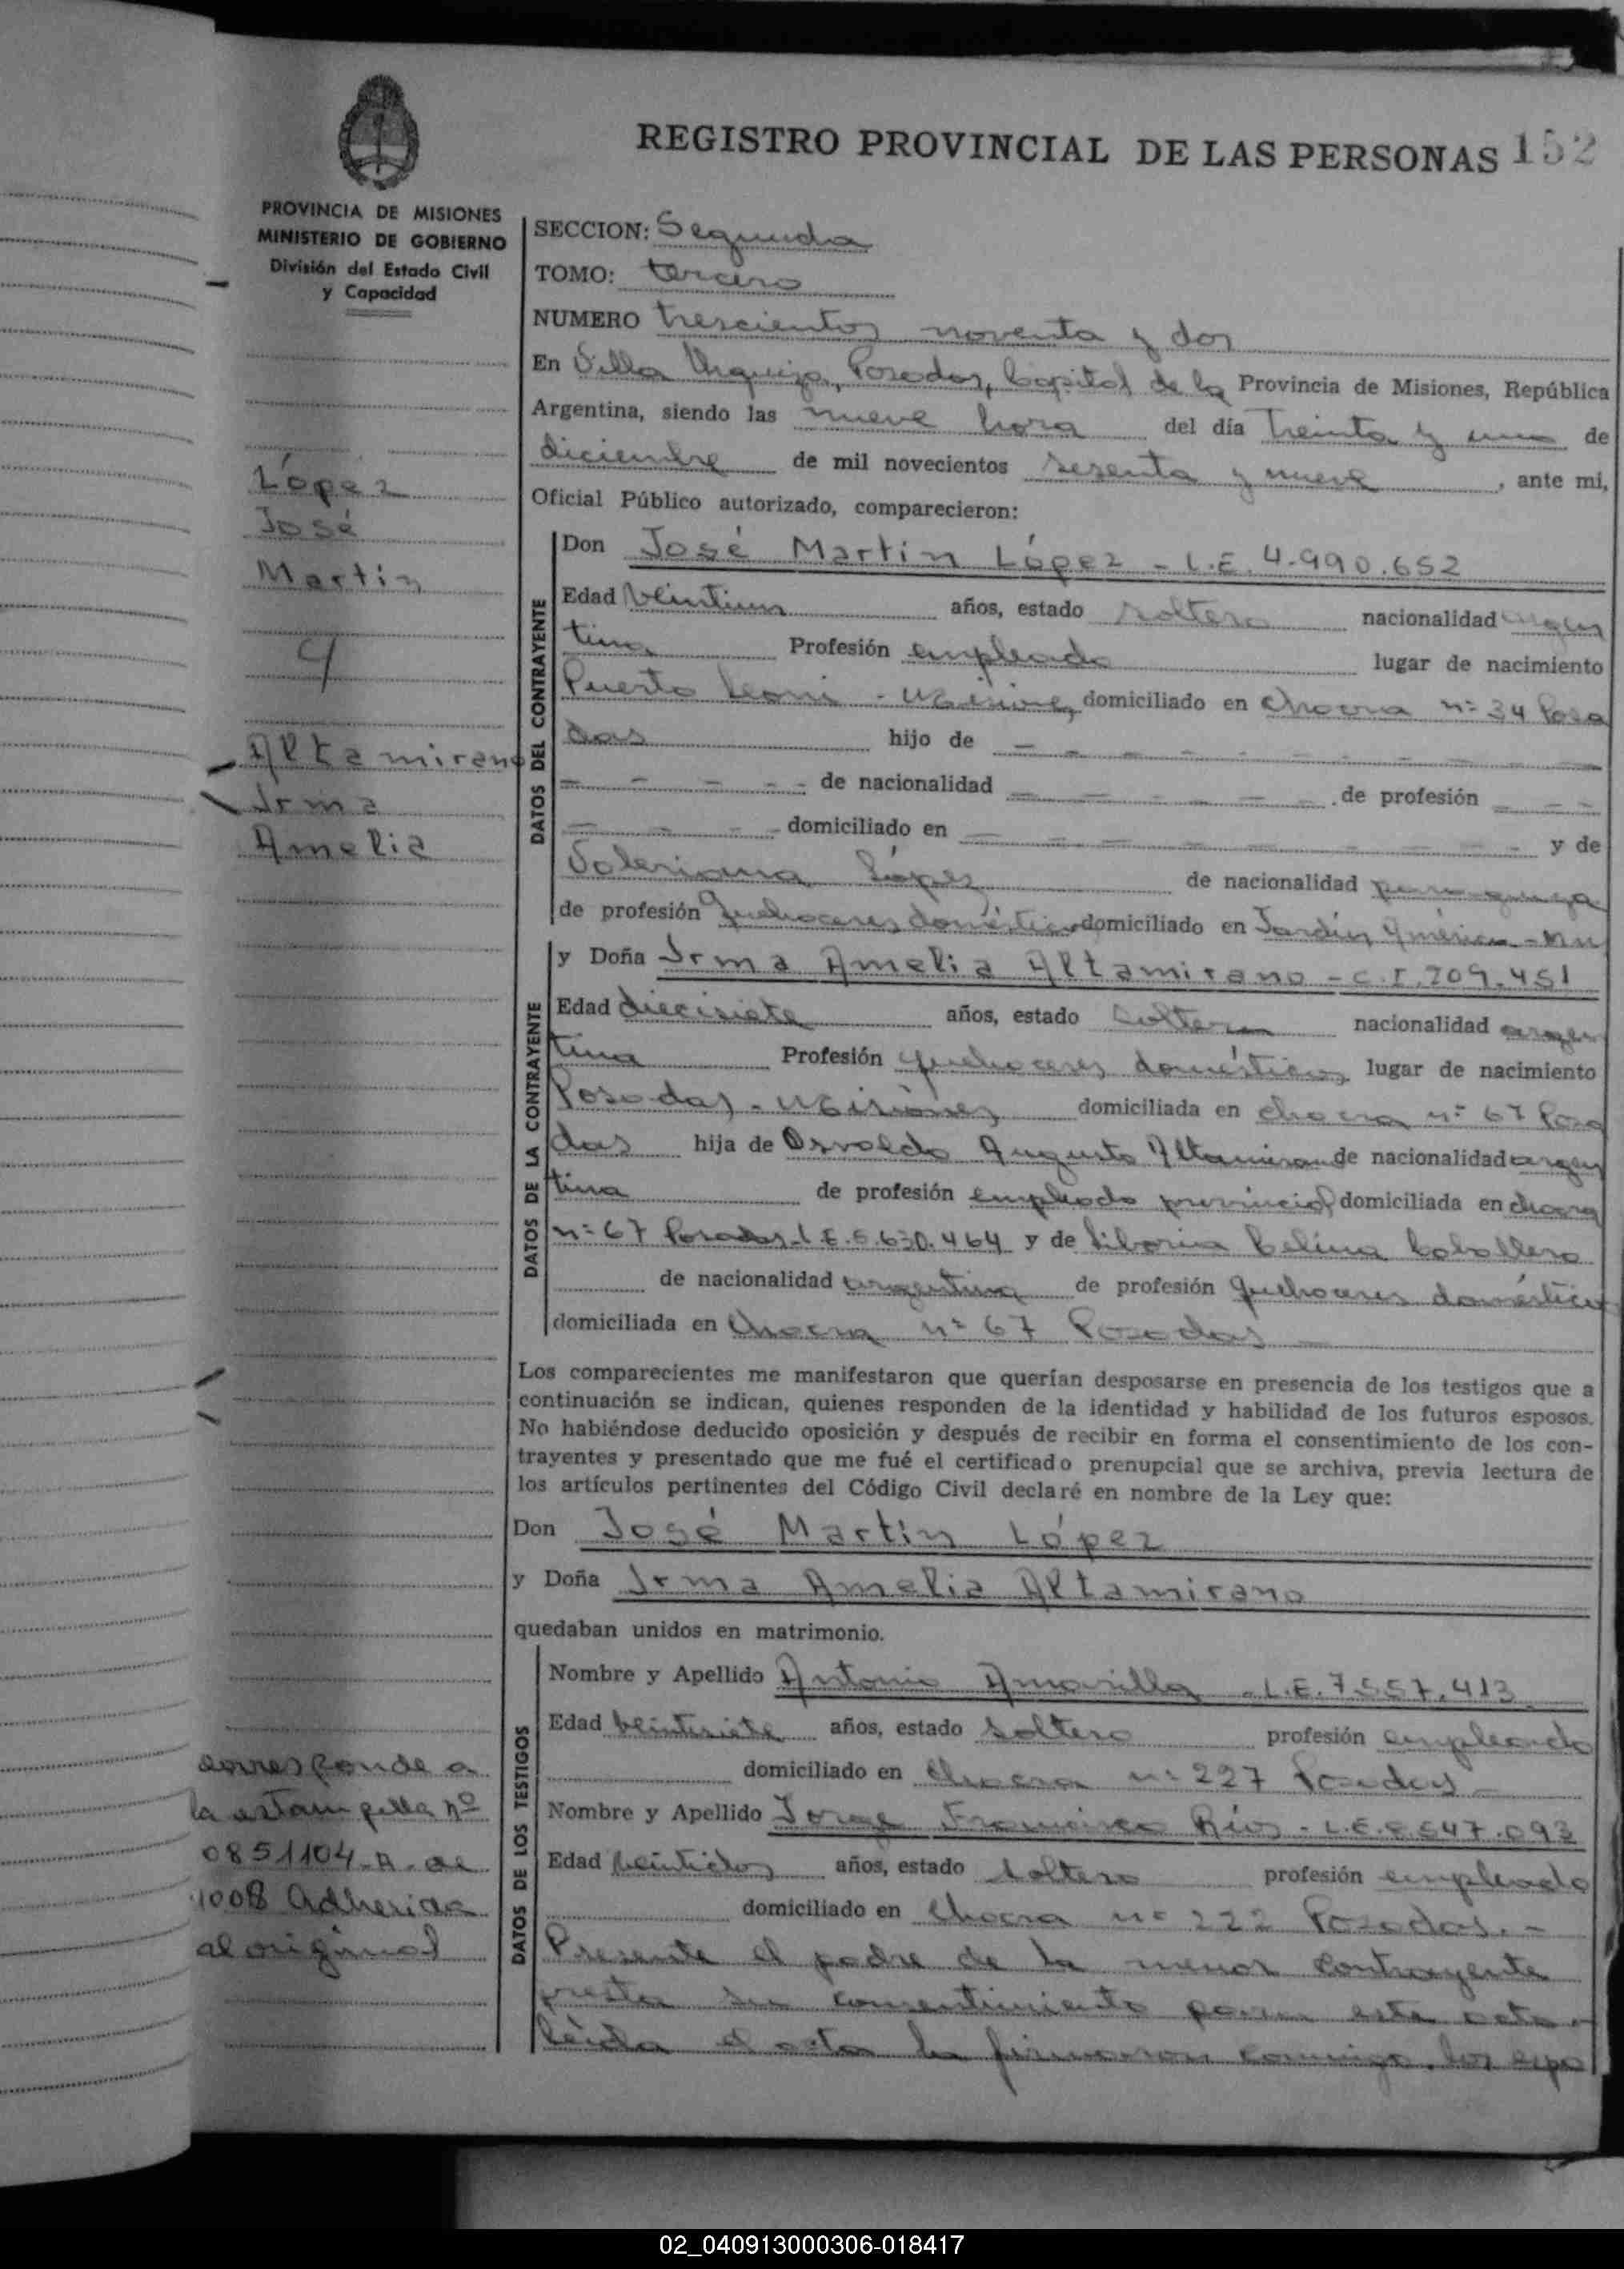 REGISTRO PROVINCIAL DE LAS PERSONAS 152
PROVINCIA DE MISIONES
MINISTERIO DE GOBIERNO
División del Estado Civil
y Capacidad
López
José
Martín
y
Altamirano
Irma
Amelia
corresponde a
la estampilla nº
0851104-A- de
1008 Adherida
al original
SECCION: Segunda
TOMO: tercero
NUMERO trescientos noventa y dos
En Villa Urquiza, Posadas, Capital de la Provincia de Misiones, República
Argentina, siendo las nueve hora del día treinta y uno de
diciembre de mil novecientos sesenta y nueve, ante mi,
Oficial Público autorizado, comparecieron:
DATOS DEL CONTRAYENTE
Don José Martín López - L.E. 4.990.652
Edad veintiun años, estado soltero nacionalidad argen
tina Profesión empleado lugar de nacimiento
Puerto Leoni - Misiones, domiciliado en chacra nº 34 Posa
das hijo de — — — — — — —
— — — — — de nacionalidad — — — — — . de profesión — — —
— — — — domiciliado en — — — — — — — y de
López de nacionalidad paraguaya
de profesión quehaceres domésticos domiciliado en Jardín América - Mnes
DATOS DE LA CONTRAYENTE
y Doña Irma Amelia Altamirano - C.I. 209.451
Edad diecisiete años, estado soltera nacionalidad argen
tina Profesión quehaceres domésticos, lugar de nacimiento
Posadas - Misiones domiciliada en chacra nº 67 Posa
das hija de Osvaldo Augusto Altamirano de nacionalidad argen
tina de profesión empleado provincial domiciliada en chacra
nº 67 Posadas-L.E. 5.630.464 y de Liboria Celina Caballero
de nacionalidad argentina de profesión quehaceres domésticos
domiciliada en chacra nº 67 Posadas —
Los comparecientes me manifestaron que querían desposarse en presencia de los testigos que a
continuación se indican, quienes responden de la identidad y habilidad de los futuros esposos.
No habiéndose deducido oposición y después de recibir en forma el consentimiento de los con-
trayentes y presentado que me fué el certificado prenupcial que se archiva, previa lectura de
los artículos pertinentes del Código Civil declaré en nombre de la Ley que:
Don José Martín López
y Doña Irma Amelia Altamirano
quedaban unidos en matrimonio.
DATOS DE LOS TESTIGOS
Nombre y Apellido Antonio Amarilla - L.E. 7.557.413
Edad veintisiete años, estado soltero profesión empleado
domiciliado en chacra nº 227 Posadas -
Nombre y Apellido Jorge Francisco Ríos - L.E. 8.547.093
Edad veintidos años, estado soltero profesión empleado
domiciliado en chacra nº 222 Posadas. -
Presente el padre de la menor contrayente
presta su consentimiento para este acto -
leída el acta la firmaron conmigo, los espo
02_040913000306-018417